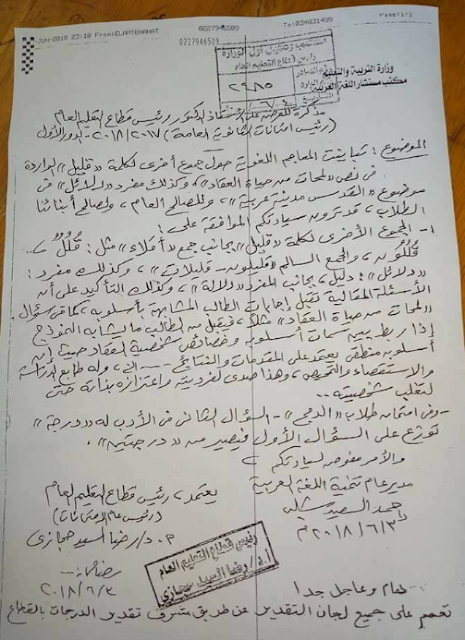 JUN-2018 23:18 From:ELAMTEHANAT 0227946509 To:034831495
0227946509
وزارة التربية والتعليم
مكتب مستشار اللغة العربية
قطاع التعليم العام
٢٤٨٥
مذكرة للعرض على الأستاذ الدكتور رئيس قطاع التعليم العام
(رئيس امتحانات الثانوية العامة) ٢٠١٧/٢٠١٨ - الدور الأول
الموضوع: تباينت المعاجم اللغوية حول جموع أخرى لكلمة «قليل» الواردة
في نص «لمحات من حياة العقاد»، وكذلك مفرد «دلائل» في
موضوع «القدس مدينة عربية»، وللصالح العام، ولصالح أبنائنا
الطلاب، قد ترون سيادتكم الموافقة على:
١- الجموع الأخرى لكلمة «قليل» بجانب جمع «أقلاء» مثل: قُلُل،
قُلُلُون، والجمع السالم «قليلون - قليلات»، وكذلك مفرد:
«دلائل»: دليل، بجانب المفرد «دلالة»، وكذلك التأكيد على أن
الأسئلة المقالية تقبل إجابات الطالب المشابهة بأسلوبه، كما في سؤال
«لمحات من حياة العقاد» مثلاً، فيقبل من الطالب ما يشابه النموذج
إذا ربط بين سمات أسلوبه وخصائص شخصية العقاد حيث إنه
أسلوبه منطقي يعتمد على المقدمات والنتائج ..... الخ، وله طابع الدراسة
والاستقصاء والتمحيص، وهذا صدى لفرديته واعتزازه بذاته حتى
لتغلب شخصيته ..
- وفي امتحان طلاب «الدمج» - السؤال الثاني في الأدب له «درجة»
توزع على السؤال الأول فيصير من «درجتين».
والأمر مفوض لسيادتكم
مدير عام تنمية اللغة العربية
يعتمد، رئيس قطاع التعليم العام
(رئيس عام الامتحانات)
٢٠١٨/٦/٣ م
د/رضا السيد حجازي
٢٠١٨/٦/٣
رئيس قطاع التعليم العام
أ.د/ رضا السيد حجازي
هام وعاجل جدا
تعمم على جميع لجان التقدير عن طريق مشرف تقدير الدرجات بالقطاع